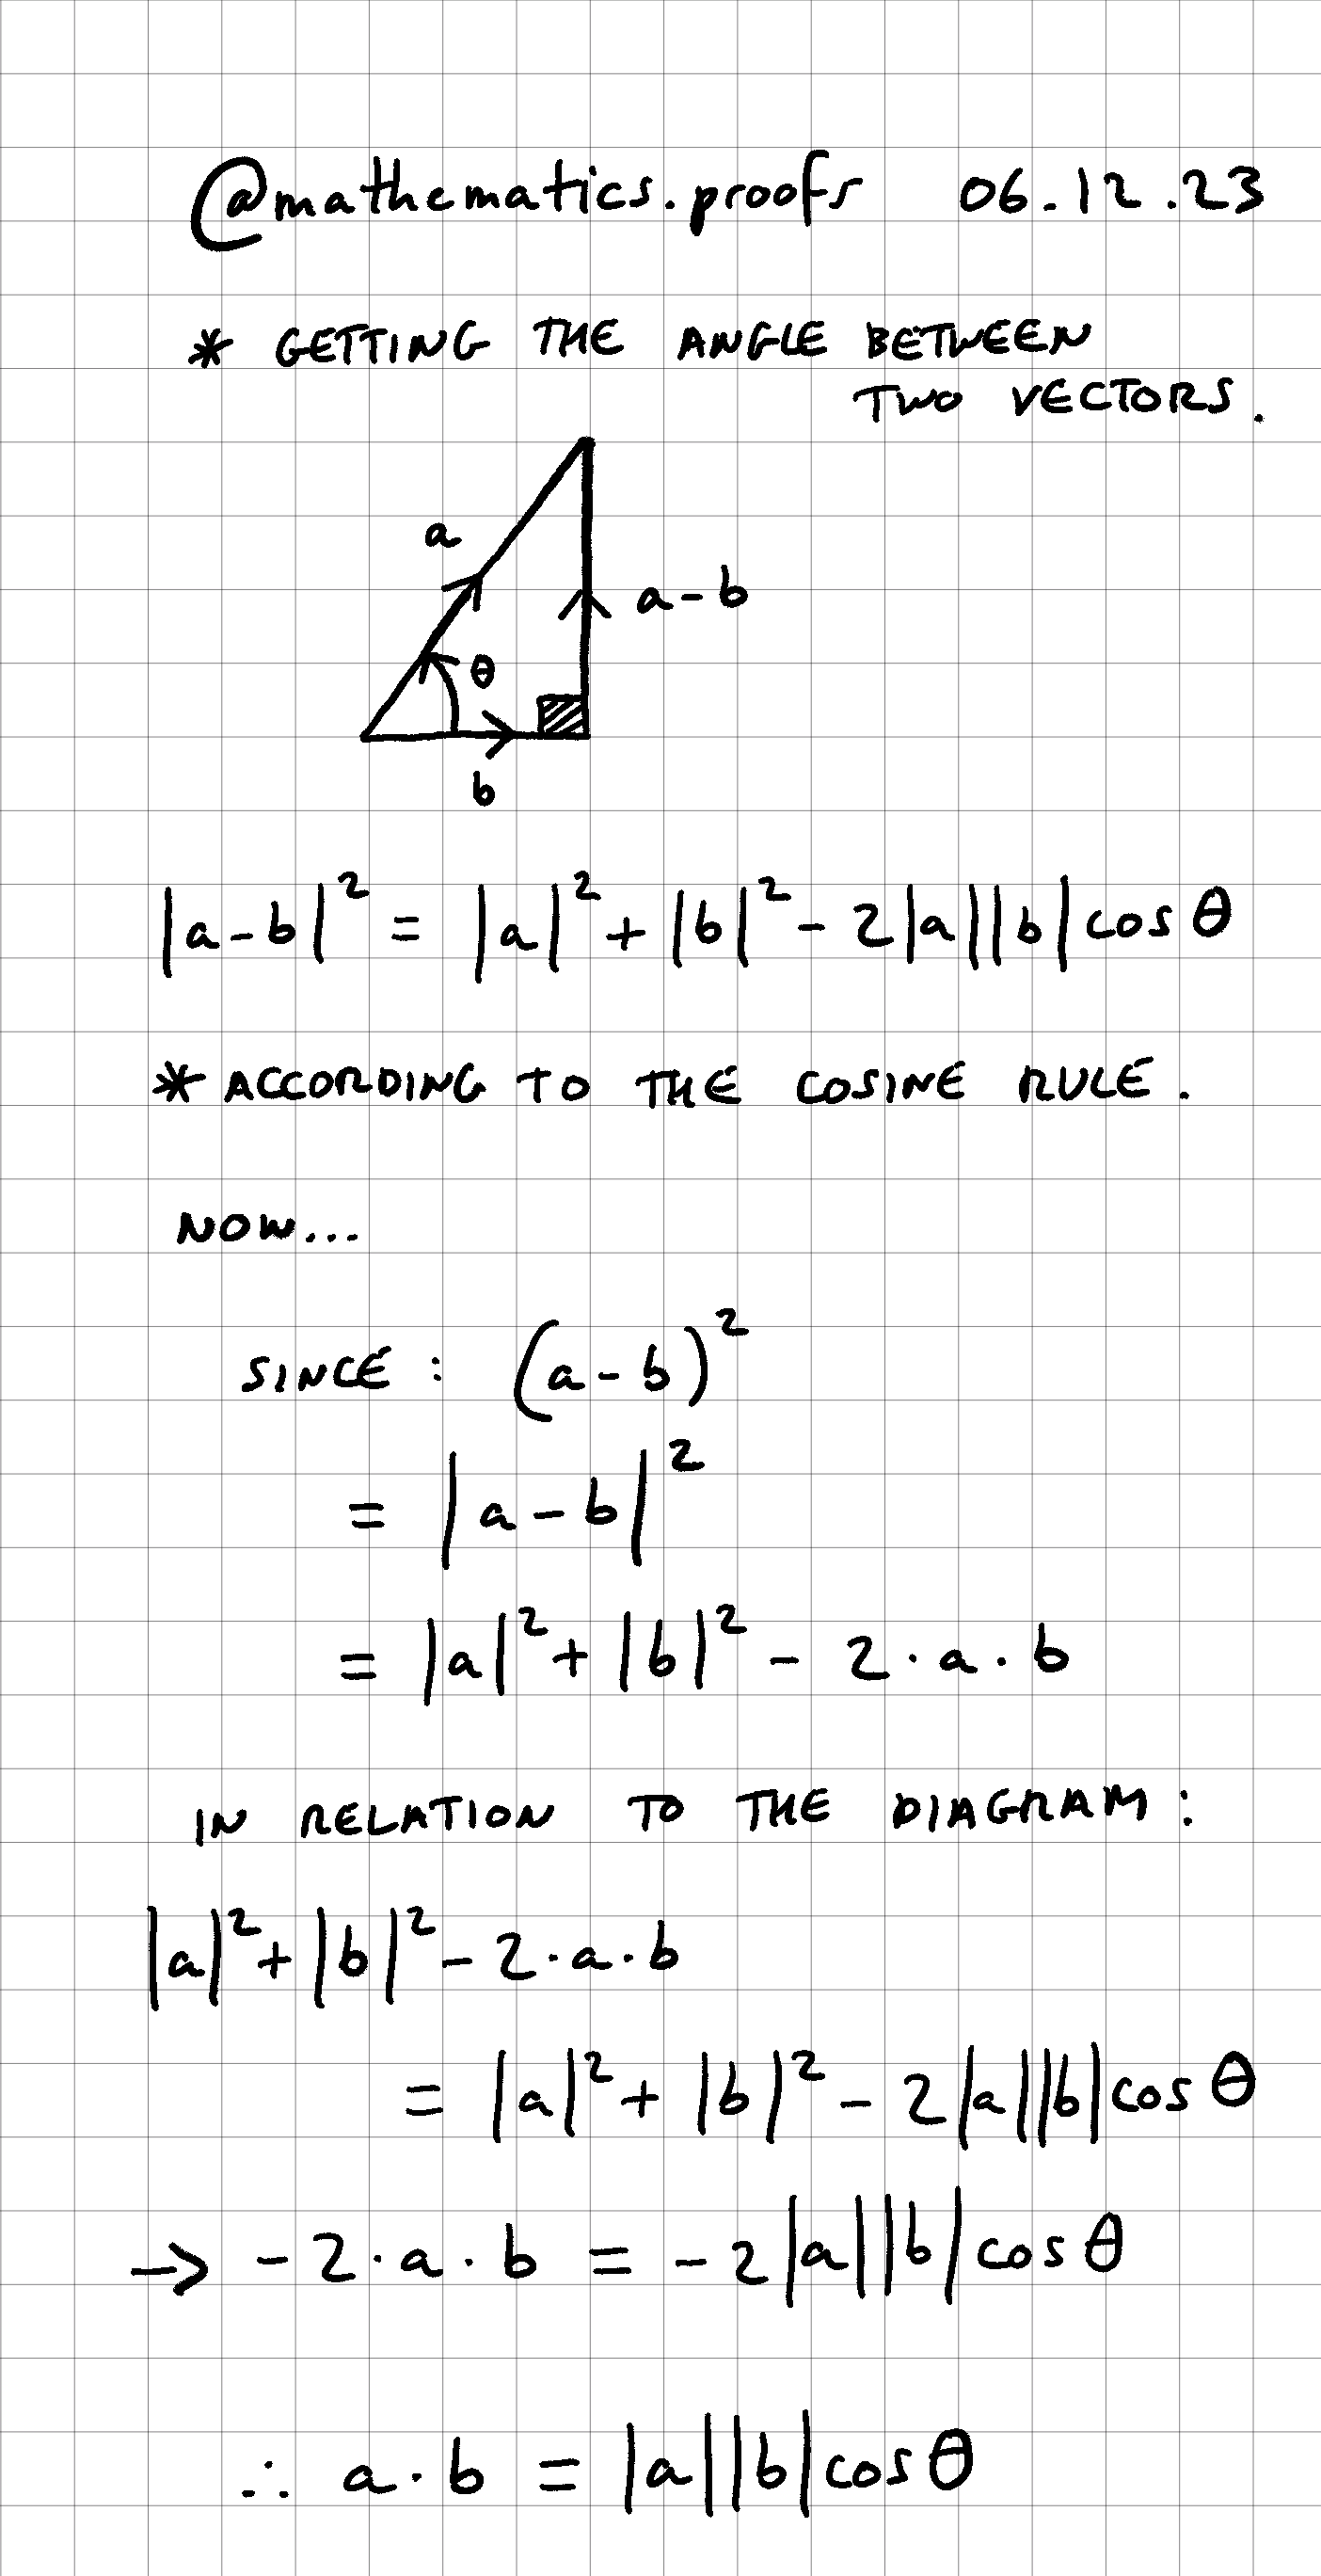 @mathematics.proofs 06.12.23
* GETTING THE ANGLE BETWEEN
TWO VECTORS.
a
a-b
θ
b
|a-b|² = |a|² + |b|² - 2|a||b|cosθ
* ACCORDING TO THE COSINE RULE.
NOW...
SINCE: (a-b)²
= |a-b|²
= |a|² + |b|² - 2·a·b
IN RELATION TO THE DIAGRAM:
|a|² + |b|² - 2·a·b
= |a|² + |b|² - 2|a||b|cosθ
→ -2·a·b = -2|a||b|cosθ
∴ a·b = |a||b|cosθ